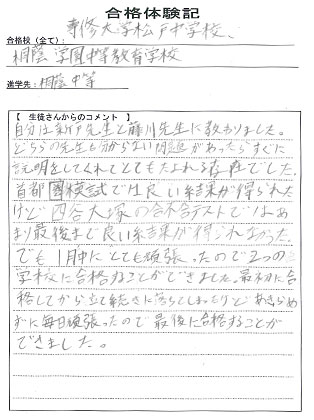 合格体験記
専修大学松戸中学校、
合格校（全て）：
桐蔭学園中等教育学校
進学先：桐蔭中等
【 生徒さんからのコメント 】
自分は新戸先生と藤川先生に教わりました。
どちらの先生も分からない問題があったらすぐに
説明をしてくれてとてもたよれる存在でした。
首都圏模試では良い結果が得られた
けど四谷大塚の合不合テストではあ
まり最後まで良い結果が得られなかった。
でも1月中にとても頑張ったので2つの
学校に合格することができました。最初に合
格してから立て続きに落ちてしまったけどあきらめ
ずに毎日頑張ったので最後に合格することが
できました。